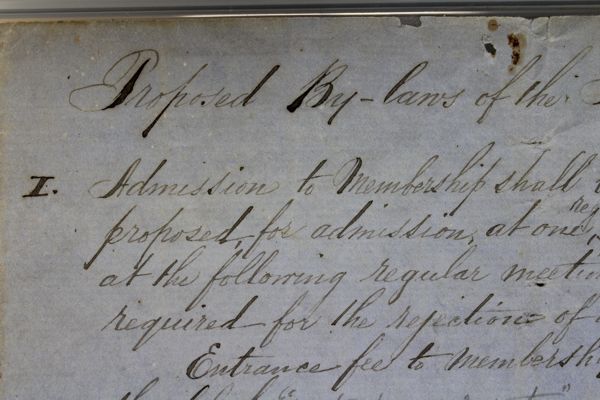 Proposed By-laws of the
I. Admission to Membership shall
proposed, for admission, at one
at the following regular
required for the rejection of
Entrance fee to